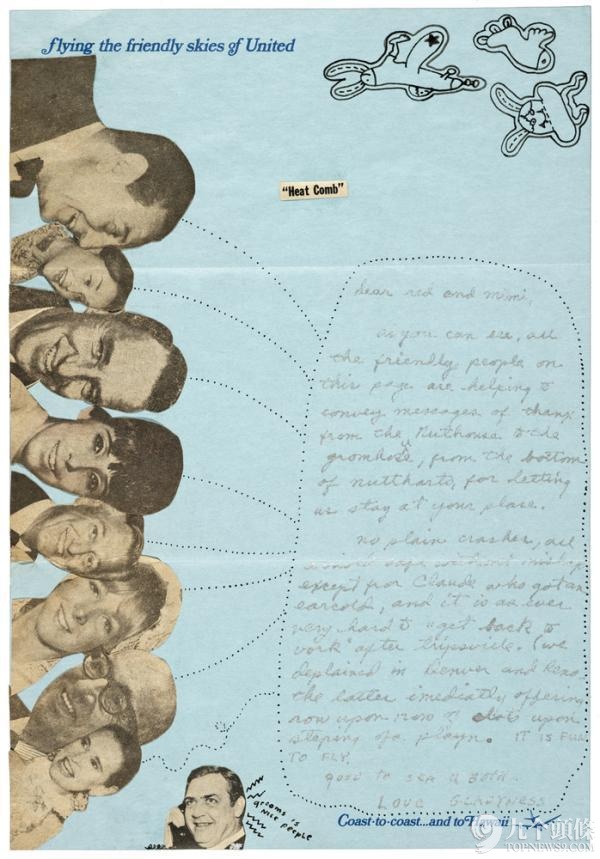 flying the friendly skies of United
"Heat Comb"
dear red and mimi,
as you can see, all
the friendly people on
this page are helping to
convey messages of thanx
from the Nutthouse to the
gromhose, from the bottom
of nuttharts, for letting
us stay at your plase.
no plain crashes, all
except for Claude who got an
earcold, and it is as ever
very hard to get back to
work after tripsville. (we
deplained in Denver and Reno
the latter imediatly offering
row upon row of slots upon
steping of a playn. IT IS FUN
TO FLY.
good to sea u both
Love GLADYNESS
grooms is
nice people
Coast-to-coast...and to Hawaii
九个頭條
TOPNEWS9.COM